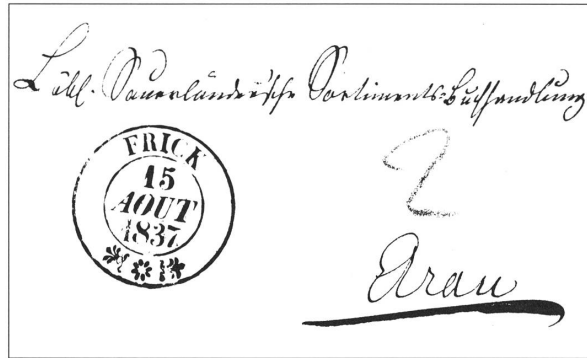 Löbl. Sauerländer'sche Sortiments-Buchhandlung
FRICK
15
AOUT
1837
2
Arau